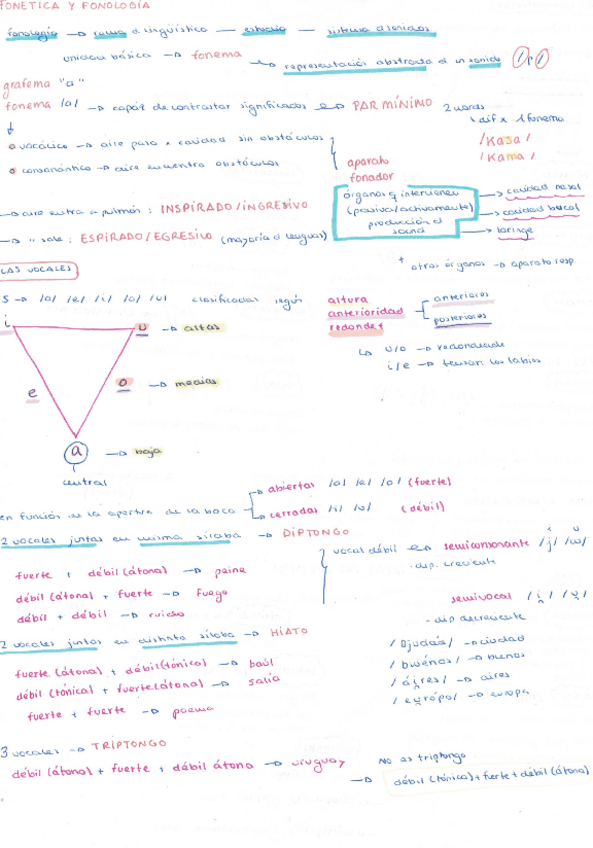 FONÉTICA Y FONOLOGÍA
fonología → rama d lingüística — estudio — sistema d sonidos
unidad básica → fonema
→ representación abstracta d un sonido
grafema "a"
fonema /a/ → capaz de contrastar significados → PAR MÍNIMO 2 words
dif x 1 fonema
/Kasa/
/Kama/
vocálico → aire pasa x cavidad sin obstáculos
consonántico → aire encuentra obstáculos
aparato
fonador
órganos q intervienen
(pasiva/activamente)
producción d
sound
→ cavidad nasal
→ cavidad bucal
→ laringe
+ otros órganos → aparato resp.
→ aire entra a pulmón : INSPIRADO/INGRESIVO
→ " sale : ESPIRADO/EGRESIVO (mayoría d lenguas)
LAS VOCALES
5 → /a/ /e/ /i/ /o/ /u/ clasificadas según
altura
anterioridad
redondez
anteriores
posteriores
u/o → redondeada
i/e → tensan los labios
i
u → altas
e
o → medias
a → baja
central
en función de la apertura de la boca
abiertas /a/ /e/ /o/ (fuerte)
cerradas /i/ /u/ (débil)
2 vocales juntas en misma sílaba → DIPTONGO
fuerte + débil (átona) → peine
débil (átona) + fuerte → fuego
débil + débil → ruido
vocal débil → semiconsonante /j/ /w/
i u
dip. creciente
semivocal /i̯/ /u̯/
- dip decreciente
2 vocales juntas en distinta sílaba → HIATO
fuerte (átona) + débil (tónica) → baúl
débil (tónica) + fuerte (átona) → salía
fuerte + fuerte → poema
/θjudád/ → ciudad
/bwénos/ → buenos
/ái̯res/ → aires
/eu̯rópa/ → europa
3 vocales → TRIPTONGO
débil (átona) + fuerte + débil átona → uruguay
NO es triptongo
→ débil (tónica) + fuerte + débil (átona)